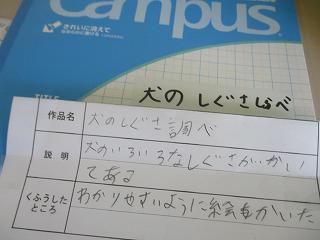 Campus
きれいに消えて
なめらかに書ける
TITLE
犬の しぐさしらべ
作品名
犬のしぐさ調べ
説明
犬のいろいろなしぐさがかい
てある
くふうした
ところ
わかりやすいように絵もかいた